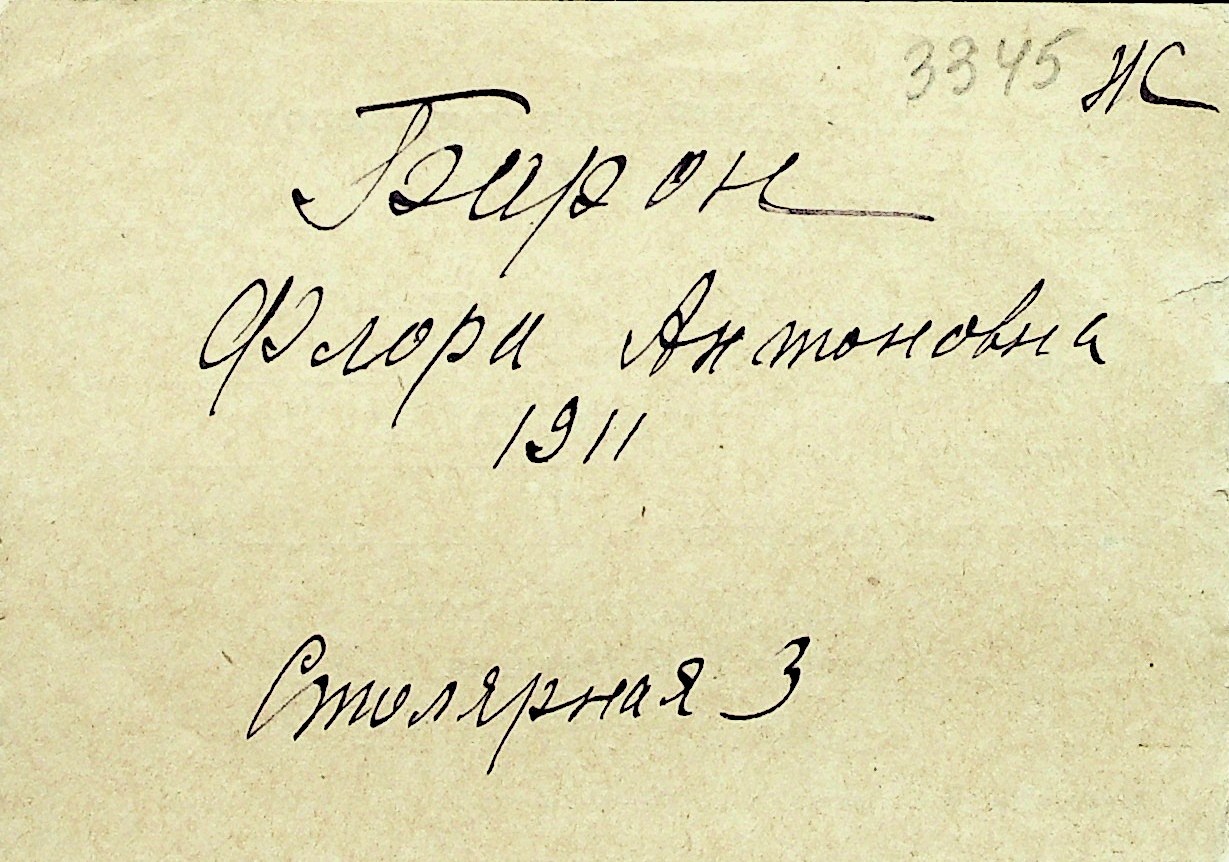 3345 НС
Барон
Флора Антоновна
1911
Столярная 3